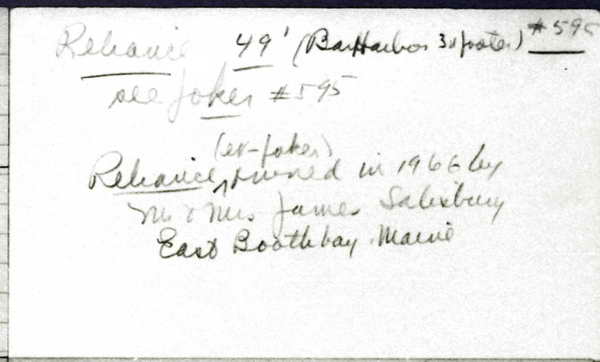 Reliance 49' (BarHarbor 31 footer) #595
see Joker #595
(ex-Joker)
Reliance ^ owned in 1966 by
Mr & Mrs James Salisbury
East Boothbay. Maine